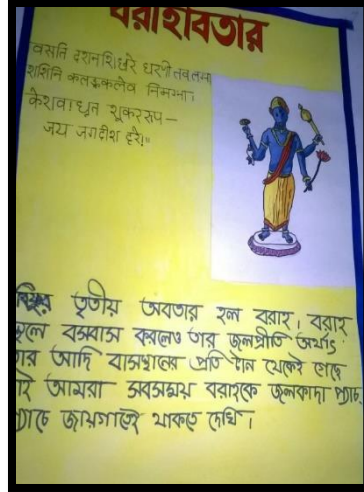 বরাহাবতার
বসতি দশনশিখরে ধরণীতবলগ্না
শশিনি কলঙ্ককলেব নিমগ্না।
কেশবাধৃত শূকররূপ—
জয় জগদীশ হরে॥
তৃতীয় অবতার হল বরাহ। বরাহ
স্থলে বসবাস করলেও তার জলপ্রীতি অর্থাৎ
তার আদি বাসস্থানের প্রতি টান থেকেই গেছে
তাই আমরা সবসময় বরাহকে জলকাদা প্যাচ
প্যাচে জায়গাতেই থাকতে দেখি।